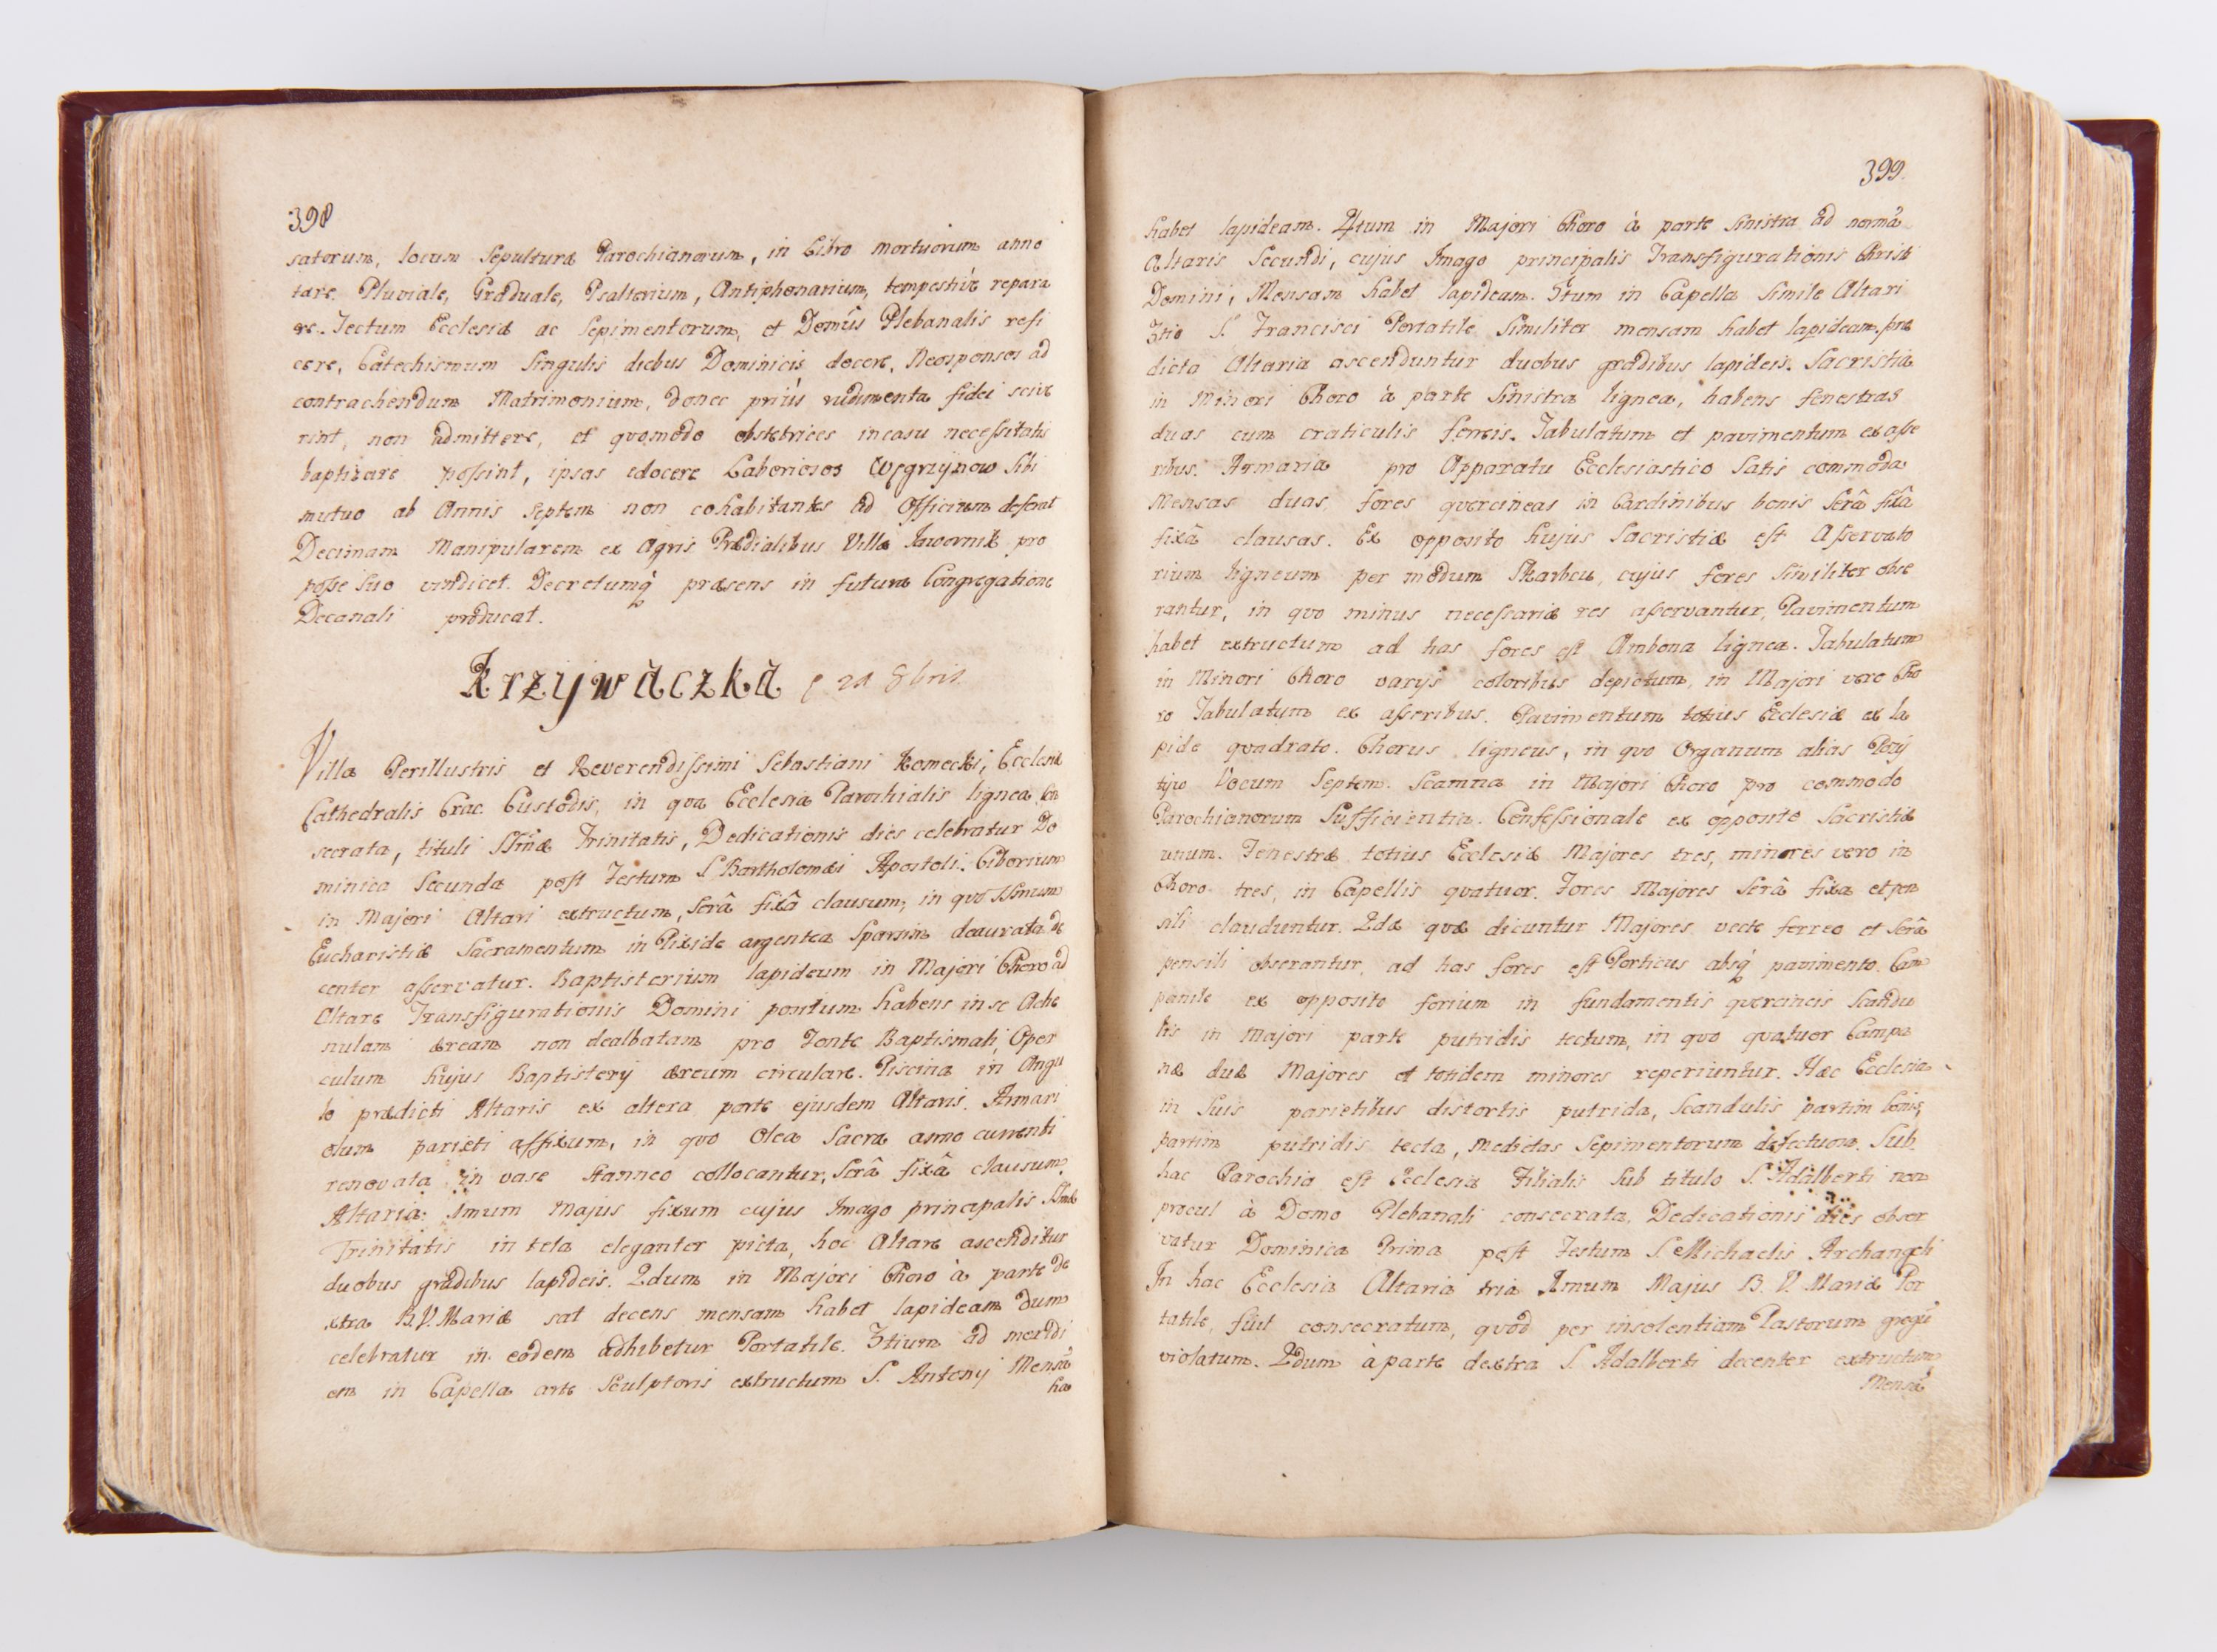 398
satorum, locum Sepulturæ Parochianorum, in Libro mortuorum anno
tare. Pluviale, Graduale, Psalterium, Antiphonarium, tempestivè repara
re. Tectum Ecclesiæ ac Sepimentorum, et Domûs Plebanalis refi
cere, Catechismum Singulis diebus Dominicis docere, Neosponsos ad
contrachendum Matrimonium, donec priùs rudimenta fidei scive
rint, non admittere, et quomodo obstetrices incasu necessitatis
baptizare possint, ipsas edocere Laboriosos Węgrzynow Sibi
mutuo ab Annis Septem non cohabitantes ad Officium deferat
Decimam Manipularem ex Agris Prædialibus Villæ Jawornik pro
posse Suo vindicet. Decretumq præsens in futura Congregatione
Decanali producat.
Krzywaczka
Villa Perillustris et Reverendissimi Sebastiani Komecki, Ecclesiæ
Cathedralis Crac. Custodis, in qva Ecclesia Parochialis lignea Con
secrata, tituli SSmæ Trinitatis, Dedicationis dies celebratur Do
minica Secunda post Festum S. Bartholomæi Apostoli. Ciborium
in Majori Altari extructum, Serâ fixâ clausum, in quo SSmum
Eucharistiæ Sacramentum in Pixide argentea Sparsim deaurata de
center asservatur. Baptisterium lapideum in Majori Choro ad
Altare Transfigurationis Domini positum habens in se Ache
nulam æream non dealbatam pro Fonte Baptismali, Oper
culum hujus Baptisterij æreum circulare. Piscina in Angu
lo prædicti Altaris ex altera parte ejusdem Altaris. Armari
olum parieti affixum, in quo Olea Sacra anno currenti
renovata in vase stanneo collocantur, Serâ fixâ clausum.
Altaria. Imum Majus fixum cujus Imago principalis SSmæ
Trinitatis in tela eleganter picta, hoc Altare ascenditur
duobus gradibus lapideis. 2dum in Majori Choro à parte de
xtra B.V. Mariæ sat decens mensam habet lapideam dum
celebratur in eodem adhibetur Portatile. 3tium ad meridi
em in Capella arte Sculptoris extructum S. Antonij Mensã
ha
399.
habet lapideam. 4tum in Majori Choro à parte Sinistra ad normã
Altaris Secundi, cujus Imago principalis Transfigurationis Christi
Domini, Mensam habet lapideam. 5tum in Capella Simile Altari
3tio S. Francisci Portatile Similiter mensam habet lapideam. præ
dicta Altaria ascenduntur duobus gradibus lapideis. Sacristia
in Minori Choro à parte Sinistra lignea, habens fenestras
duas cum craticulis ferreis. Tabulatum et pavimentum ex asse
ribus. Armaria pro Apparatu Ecclesiastico Satis commoda
Mensas duas, fores quercineas in Cardinibus bonis Serâ
fixâ clausas. Ex opposito hujus Sacristiæ est Asservato
rium ligneum per modum Skarbcu cujus fores Similiter obse
rantur, in quo minus necessariæ res asservantur, Pavimentum
habet extructum ad has fores est Ambona lignea. Tabulatum
in Minori Choro varijs coloribus depictum, in Majori vero Cho
ro Tabulatum ex asseribus. Pavimentum totius Ecclesiæ ex la
pide quadrato. Chorus ligneus, in quo Organum alias Pozy
tijw Vocum Septem. Scamna in Majori Choro pro commodo
Parochianorum Sufficientia. Confessionale ex opposito Sacristiæ
unum. Fenestræ totius Ecclesiæ Majores tres, minores vero in
Choro tres, in Capellis quatuor. Fores Majores Serâ fixa et pen
sili clauduntur. 2dæ quæ dicuntur Majores vecte ferreo et Serâ
pensili obserantur, ad has fores est Porticus absq pavimento. Cam
panile ex opposito forium in fundamentis quercineis Scandu
lis in Majori parte putridis tectum, in quo quatuor Campa
næ duæ Majores et totidem minores reperiuntur. Hæc Ecclesia
in Suis parietibus distortis putrida, Scandulis partim bonis,
partim putridis tecta, Medietas Sepimentorum defectuosa. Sub
hac Parochia est Ecclesia Filialis Sub titulo S. Adalberti non
procul à Domo Plebanali consecrata, Dedicationis dies obser
vatur Dominica Prima post Festum S. Michaelis Archangeli
In hac Ecclesia Altaria tria Imum Majus B. V. Mariæ Por
tatile, fuit consecratum, quod per insolentiam Pastorum gregũ
violatum. 2dum à parte dextra S. Adalberti decenter extructum
Mensã